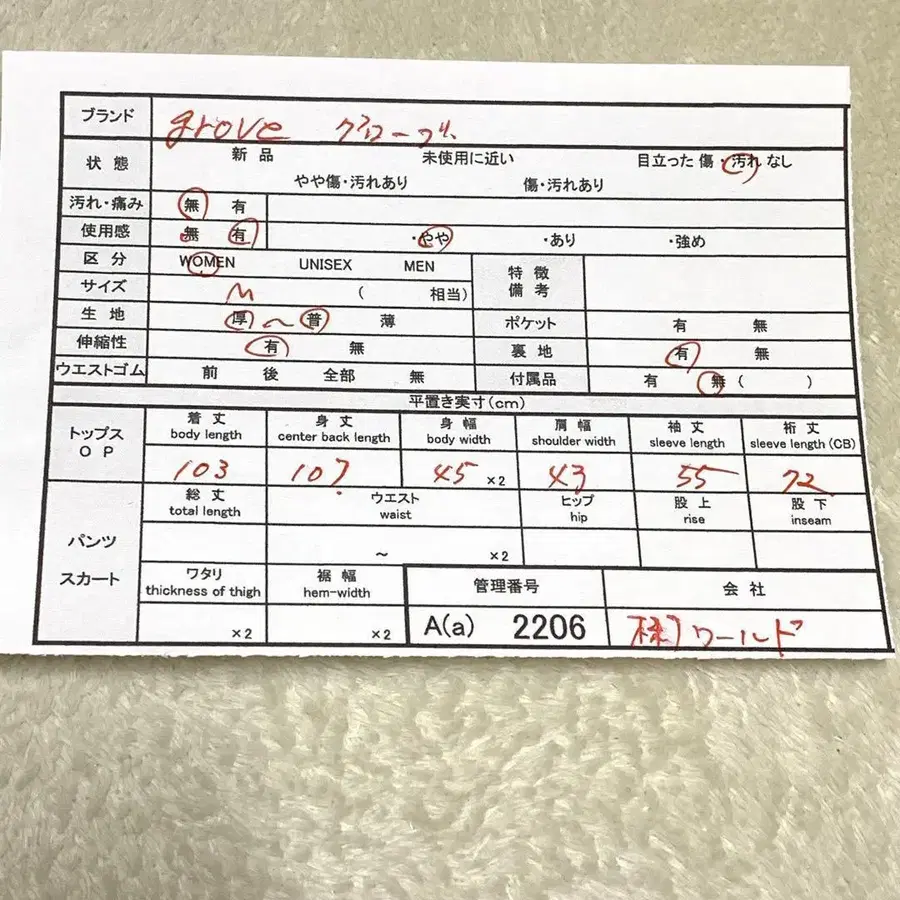 ブランド grove グローブ
状態 新品 未使用に近い 目立った傷・汚れなし
やや傷・汚れあり 傷・汚れあり
汚れ・痛み 無 有
使用感 無 有 ・やや ・あり ・強め
区分 WOMEN UNISEX MEN 特徴
備考
サイズ M ( 相当)
生地 厚 〜 普 薄 ポケット 有 無
伸縮性 有 無 裏地 有 無
ウエストゴム 前 後 全部 無 付属品 有 無 ( )
平置き実寸(cm)
トップス
OP
着丈 身丈 身幅 肩幅 袖丈 裄丈
body length center back length body width shoulder width sleeve length sleeve length (CB)
103 107 45 ×2 43 55 72
パンツ
スカート
総丈 ウエスト ヒップ 股上 股下
total length waist hip rise inseam
～ ×2
ワタリ 裾幅 管理番号 会社
thickness of thigh hem-width
×2 ×2 A(a) 2206 (株)ワールド